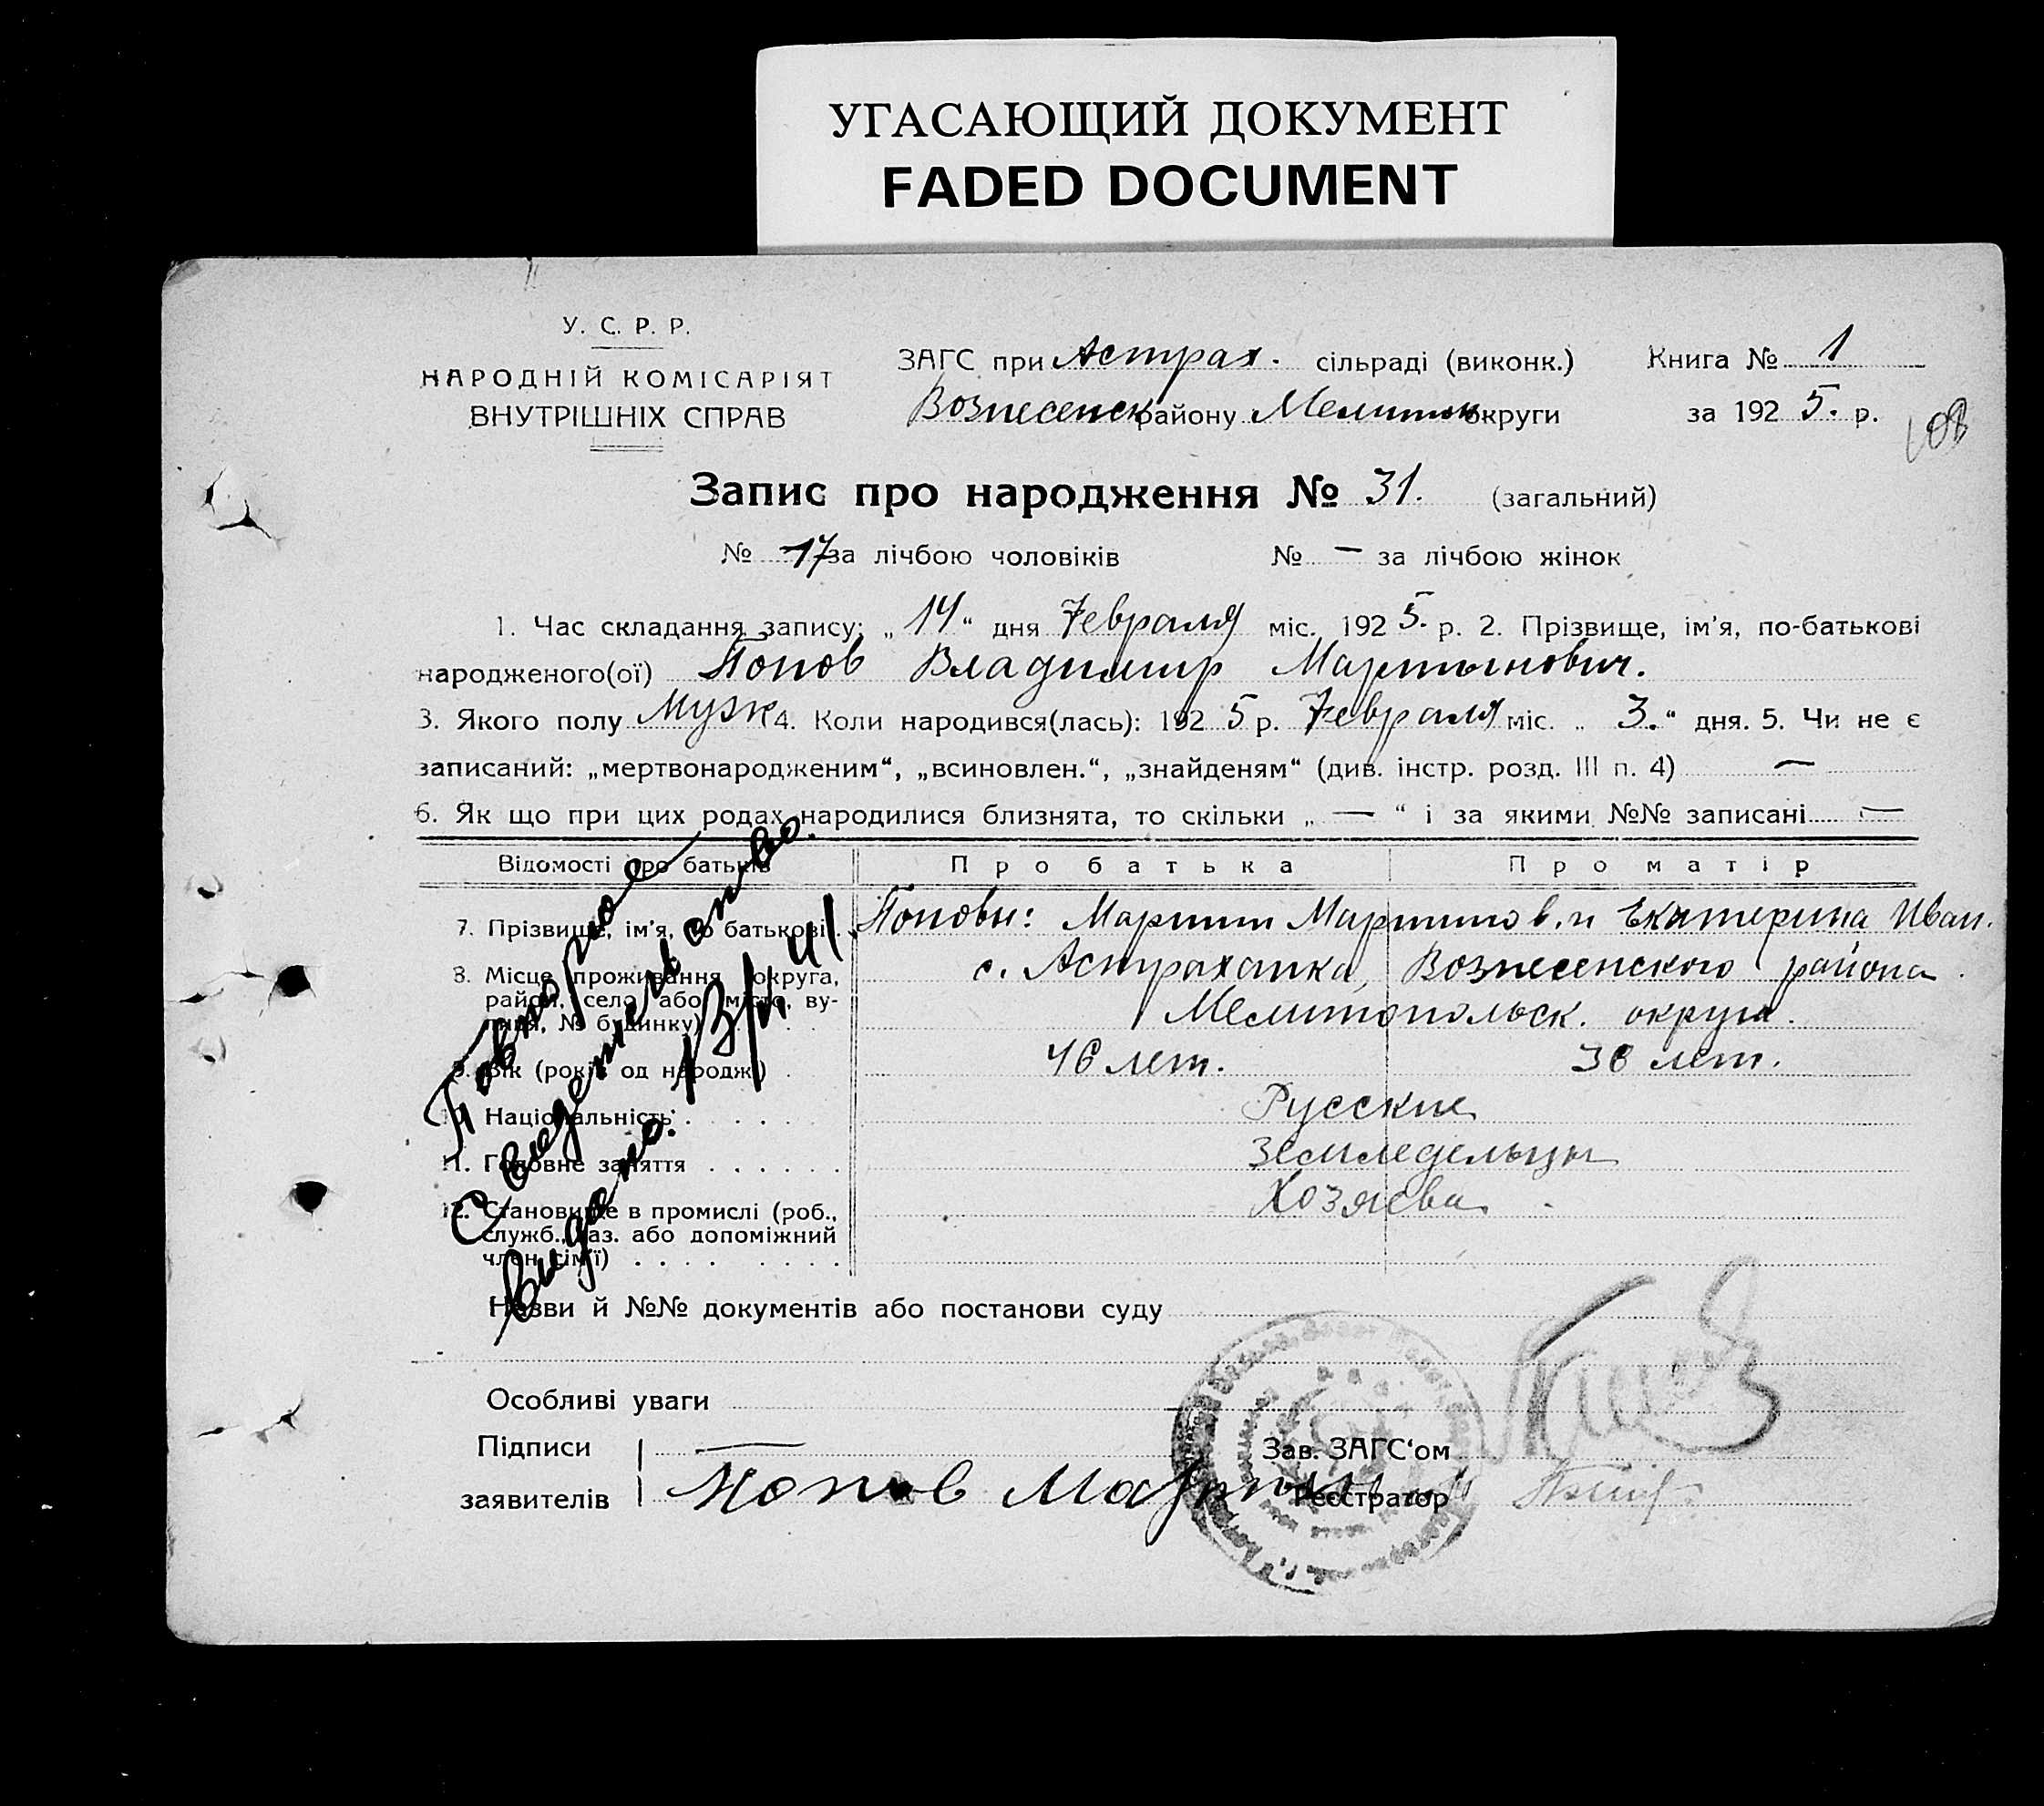 УГАСАЮЩИЙ ДОКУМЕНТ
FADED DOCUMENT
У. С. Р. Р.
НАРОДНІЙ КОМІСАРІЯТ
ВНУТРІШНІХ СПРАВ
ЗАГС при Астрах. сільраді (виконк.) Книга № 1
Вознесенск району Мелитоп округи за 192 5. р.
108
Запис про народження № 31. (загальний)
№ 17 за лічбою чоловіків № — за лічбою жінок
1. Час складання запису: „ 14 “ дня Февраля міс. 192 5. р. 2. Прізвище, ім'я, по-батькові
народженого(ої) Попов Владимир Мартынович.
3. Якого полу Мужк 4. Коли народився(лась): 192 5 р. Февраля міс. „ 3. “ дня. 5. Чи не є
записаний: „мертвонародженим“, „всиновлен.“, „знайденям“ (див. інстр. розд. III п. 4) —
6. Як що при цих родах народилися близнята, то скільки „ — “ і за якими №№ записані —
Відомості про батьків Про батька Про матір
7. Прізвище, ім'я, по батькові. Поповы: Мартин Мартинов. и Екатерина Иван.
8. Місце проживання (округа, с. Астраханка, Вознесенского района
район, село або місто, ву-
лиця, № будинку) . . . Мелитопольск. округа.
9. Вік (років од народж.) . 46 лет. 38 лет.
10. Національність . . . . . . Русские
11. Головне заняття . . . . . . Земледельцы
12. Становище в промислі (роб., Хозяева
служб., хаз. або допоміжний
член сім'ї) . . . . . . . .
Повторное
Свидетельство.
Выдано. 13/II 41.
Назви й №№ документів або постанови суду
Особливі уваги
Підписи — Зав. ЗАГС'ом
заявителів Попов Мартин Реєстратор